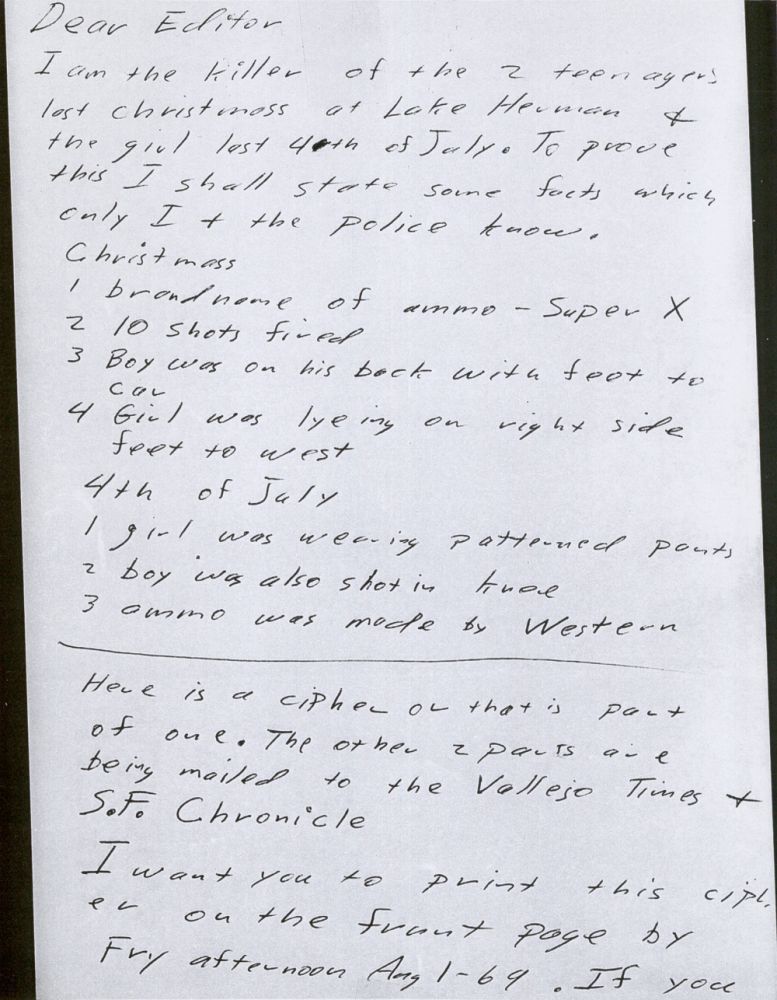 Dear Editor
I am the killer of the 2 teenagers
last christmass at Lake Herman &
the girl last 4th of July. To prove
this I shall state some facts which
only I + the police know.
Christmass
1 brand name of ammo - Super X
2 10 shots fired
3 Boy was on his back with feet to
car
4 Girl was lyeing on right side
feet to west
4th of July
1 girl was wearing patterned pants
2 boy was also shot in knee
3 ammo was made by Western
Here is a cipher or that is part
of one. The other 2 parts are
being mailed to the Vallejo Times +
S.F. Chronicle
I want you to print this ciph-
er on the frunt page by
Fry afternoon Aug 1-69. If you